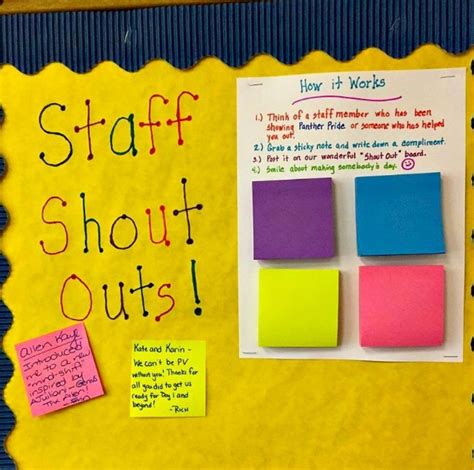 Staff
Shout
Outs!
How it Works
1.) Think of a staff member who has been
showing Panther Pride or someone who has helped
you out.
2.) Grab a sticky note and write down a compliment.
3.) Post it on our wonderful "Shout Out" board.
4.) Smile about making somebody's day.
Allen Kaye
Introduced
me to a new
"mind-shift"
inspired by
Kate and Karin -
We can't be PV
without you! Thanks for
all you did to get us
ready for Day 1 and
beyond!
- Rich